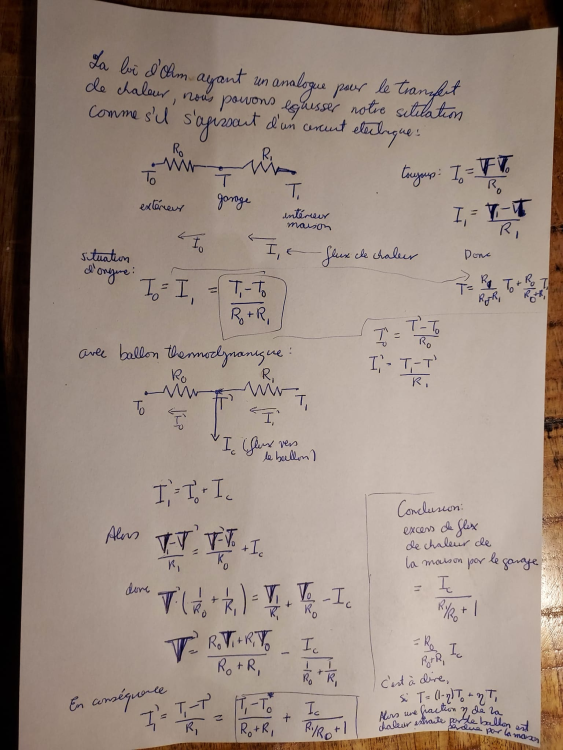 La loi d'Ohm ayant un analogue pour le transfert
de chaleur, nous pouvons esquisser notre situation
comme s'il s'agissait d'un circuit electrique :
R₀ R₁
T₀ T T₁
extérieur garage intérieur
maison
I₀ I₁ ← flux de chaleur
toujours: I₀ = (T-T₀)/R₀
I₁ = (T₁-T)/R₁
Donc
T = R₁/(R₀+R₁) T₀ + R₀/(R₀+R₁) T₁
situation
d'origine:
I₀ = I₁ = (T₁-T₀)/(R₀+R₁)
avec ballon thermodynamique :
I₀' = (T'-T₀)/R₀
I₁' = (T₁-T')/R₁
R₀ R₁
T₀ T' T₁
I₀' I₁'
I_c (flux vers
le ballon)
I₁' = I₀' + I_c
Alors (T₁-T')/R₁ = (T'-T₀)/R₀ + I_c
donc T'·(1/R₀ + 1/R₁) = T₁/R₁ + T₀/R₀ - I_c
T' = (R₀T₁+R₁T₀)/(R₀+R₁) - I_c/(1/R₀+1/R₁)
En conséquence
I₁' = (T₁-T')/R₁ = (T₁-T₀)/(R₀+R₁) + I_c/(R₁/R₀+1)
Conclusion:
excès de flux
de chaleur de
la maison par le garage
= I_c/(R₁/R₀+1)
= R₀/(R₀+R₁) I_c
c'est à dire,
si T = (1-η)T₀ + ηT₁
Alors une fraction η de la
chaleur extraite par le ballon est
perdue par la maison